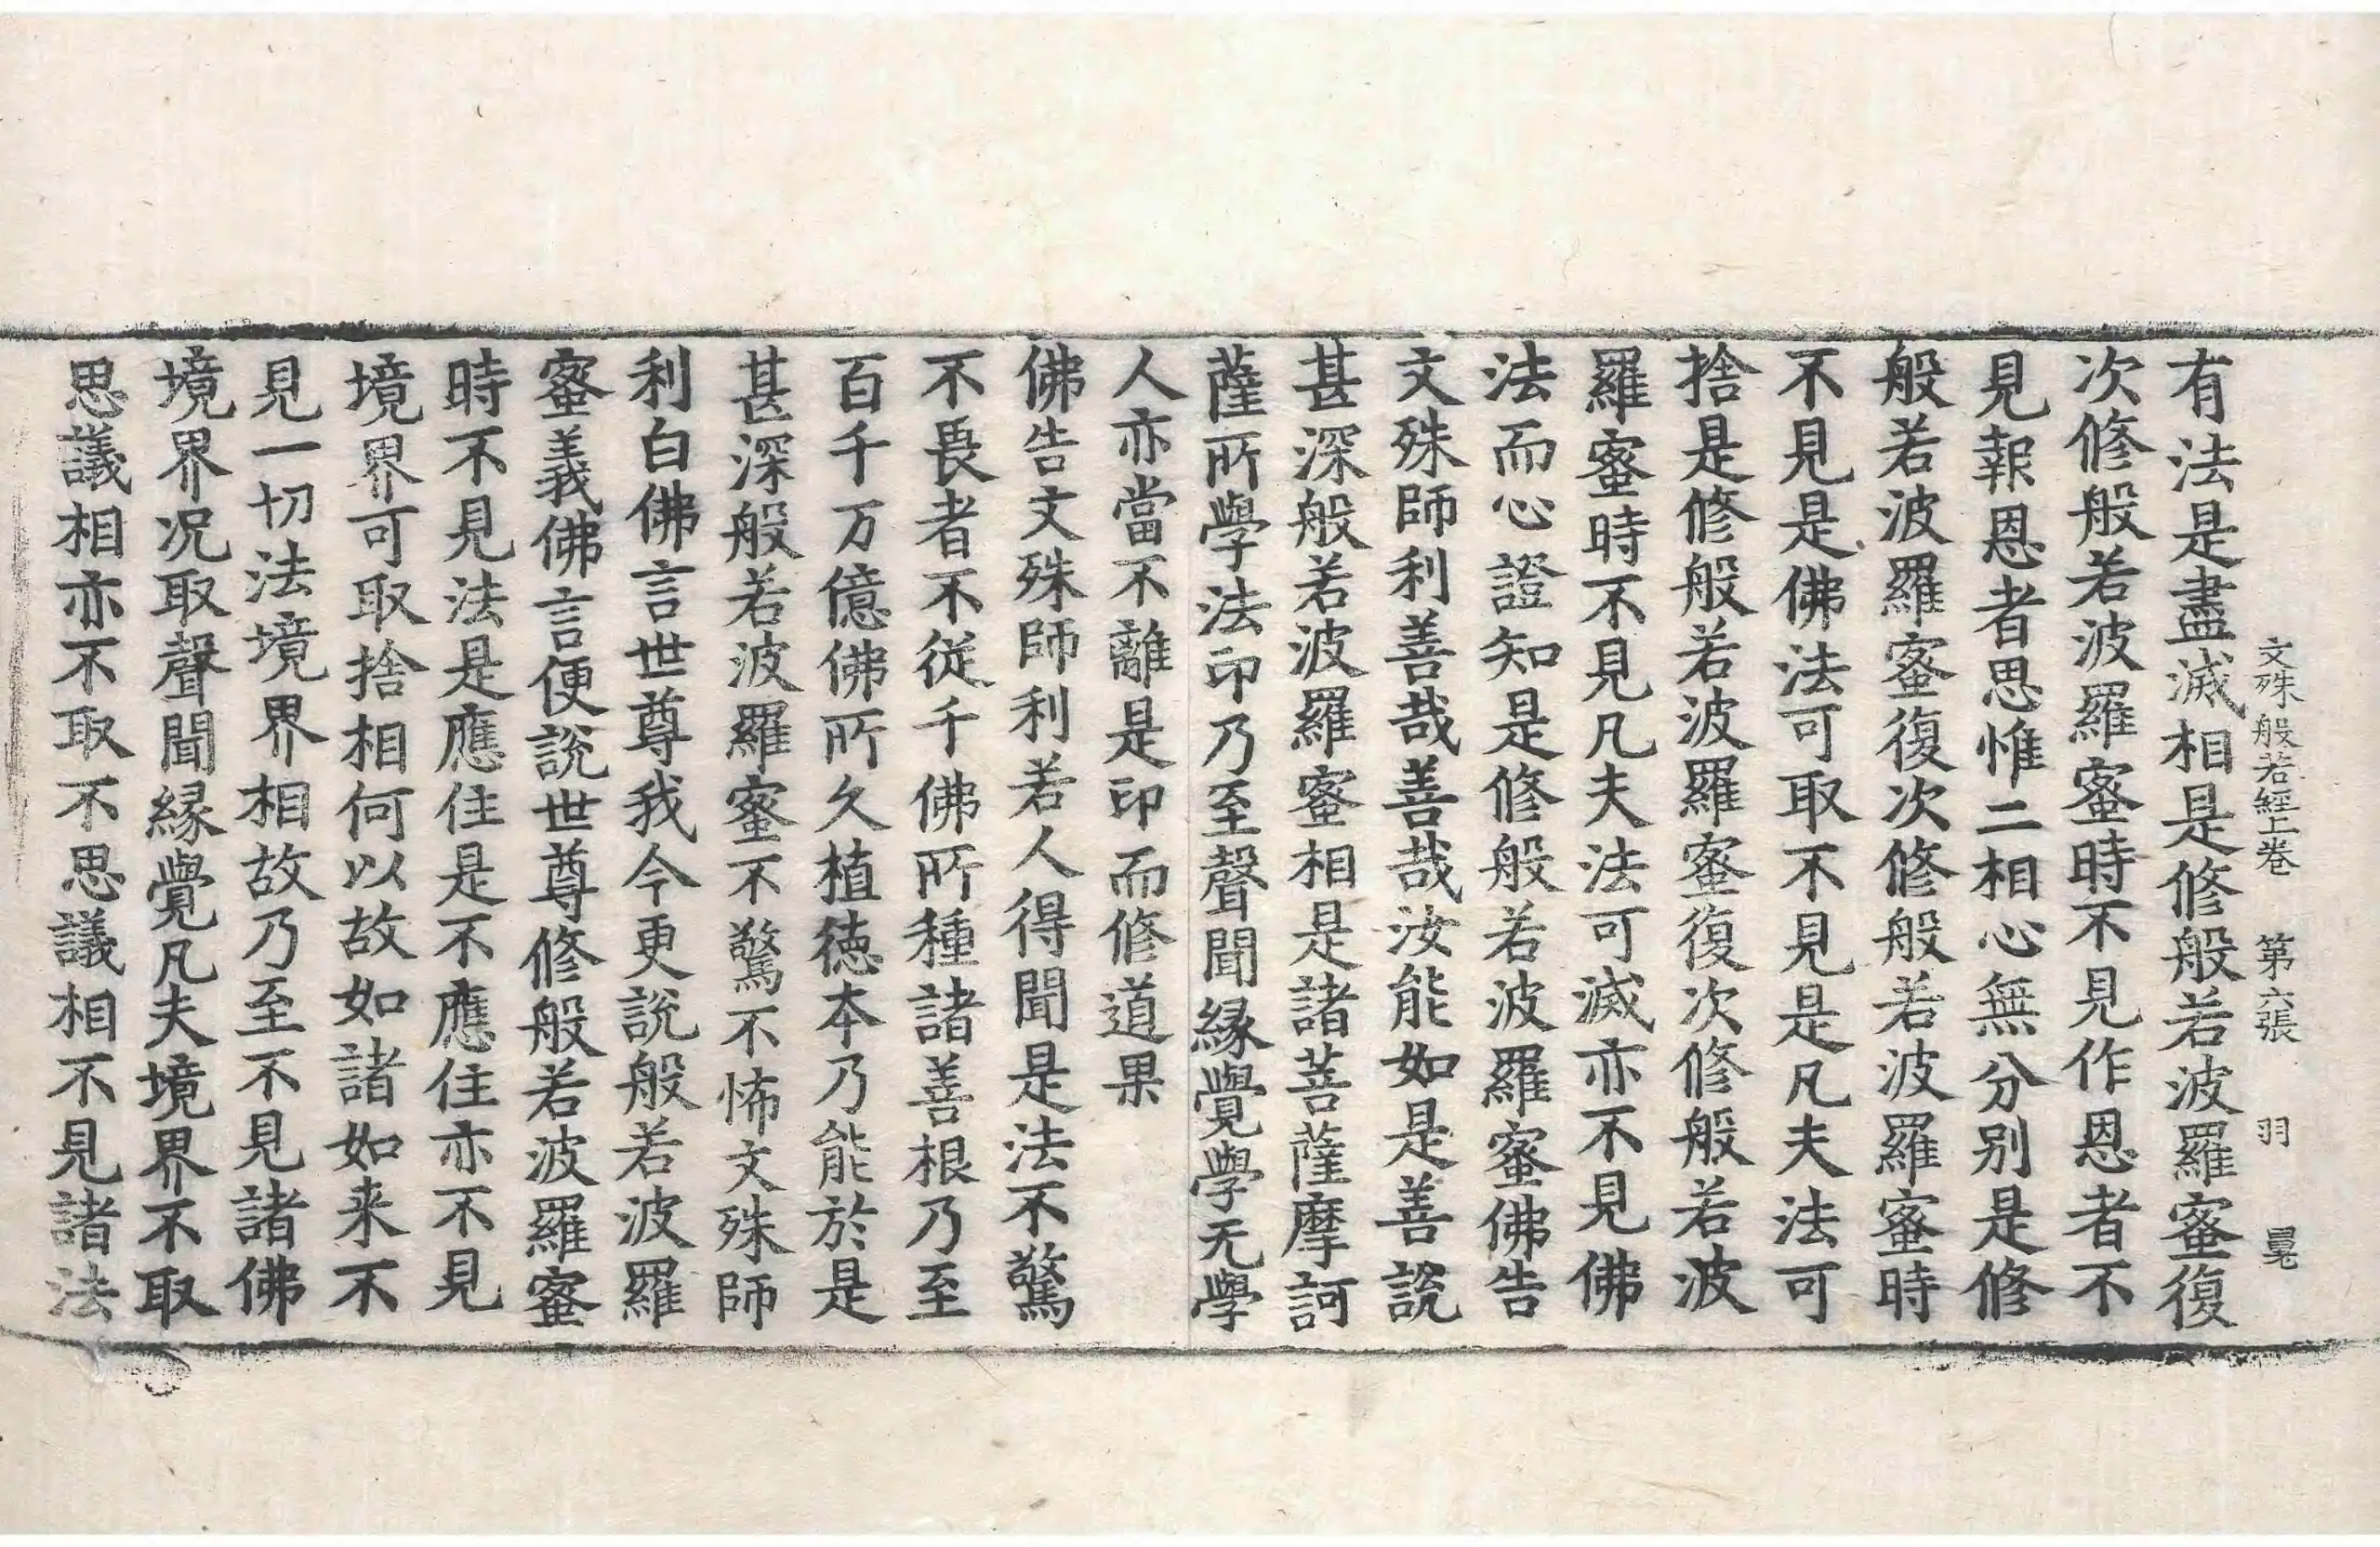 文殊般若經上卷 第六張 羽
有法是盡滅相是修般若波羅蜜復
次修般若波羅蜜時不見作恩者不
見報恩者思惟二相心無分别是修
般若波羅蜜復次修般若波羅蜜時
不見是佛法可取不見是凡夫法可
捨是修般若波羅蜜復次修般若波
羅蜜時不見凡夫法可滅亦不見佛
法而心證知是修般若波羅蜜佛告
文殊師利善哉善哉汝能如是善說
甚深般若波羅蜜相是諸菩薩摩訶
薩所學法印乃至聲聞緣覺學无學
人亦當不離是印而修道果
佛告文殊師利若人得聞是法不驚
不畏者不從千佛所種諸善根乃至
百千万億佛所久植德本乃能於是
甚深般若波羅蜜不驚不怖文殊師
利白佛言世尊我今更說般若波羅
蜜義佛言便說世尊修般若波羅蜜
時不見法是應住是不應住亦不見
境界可取捨相何以故如諸如来不
見一切法境界相故乃至不見諸佛
境界况取聲聞緣覺凡夫境界不取
思議相亦不取不思議相不見諸法